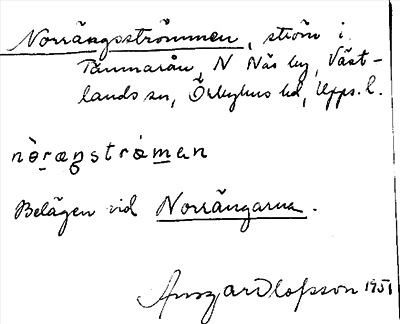 Norrängsströmmen, ström i
Tämnarån, N Näs by, Väst-
lands sn, Örbyhus hd, Upps. l.
nòrængstrømen
Belägen vid Norrängarna.
Ansgar Olofsson 1951